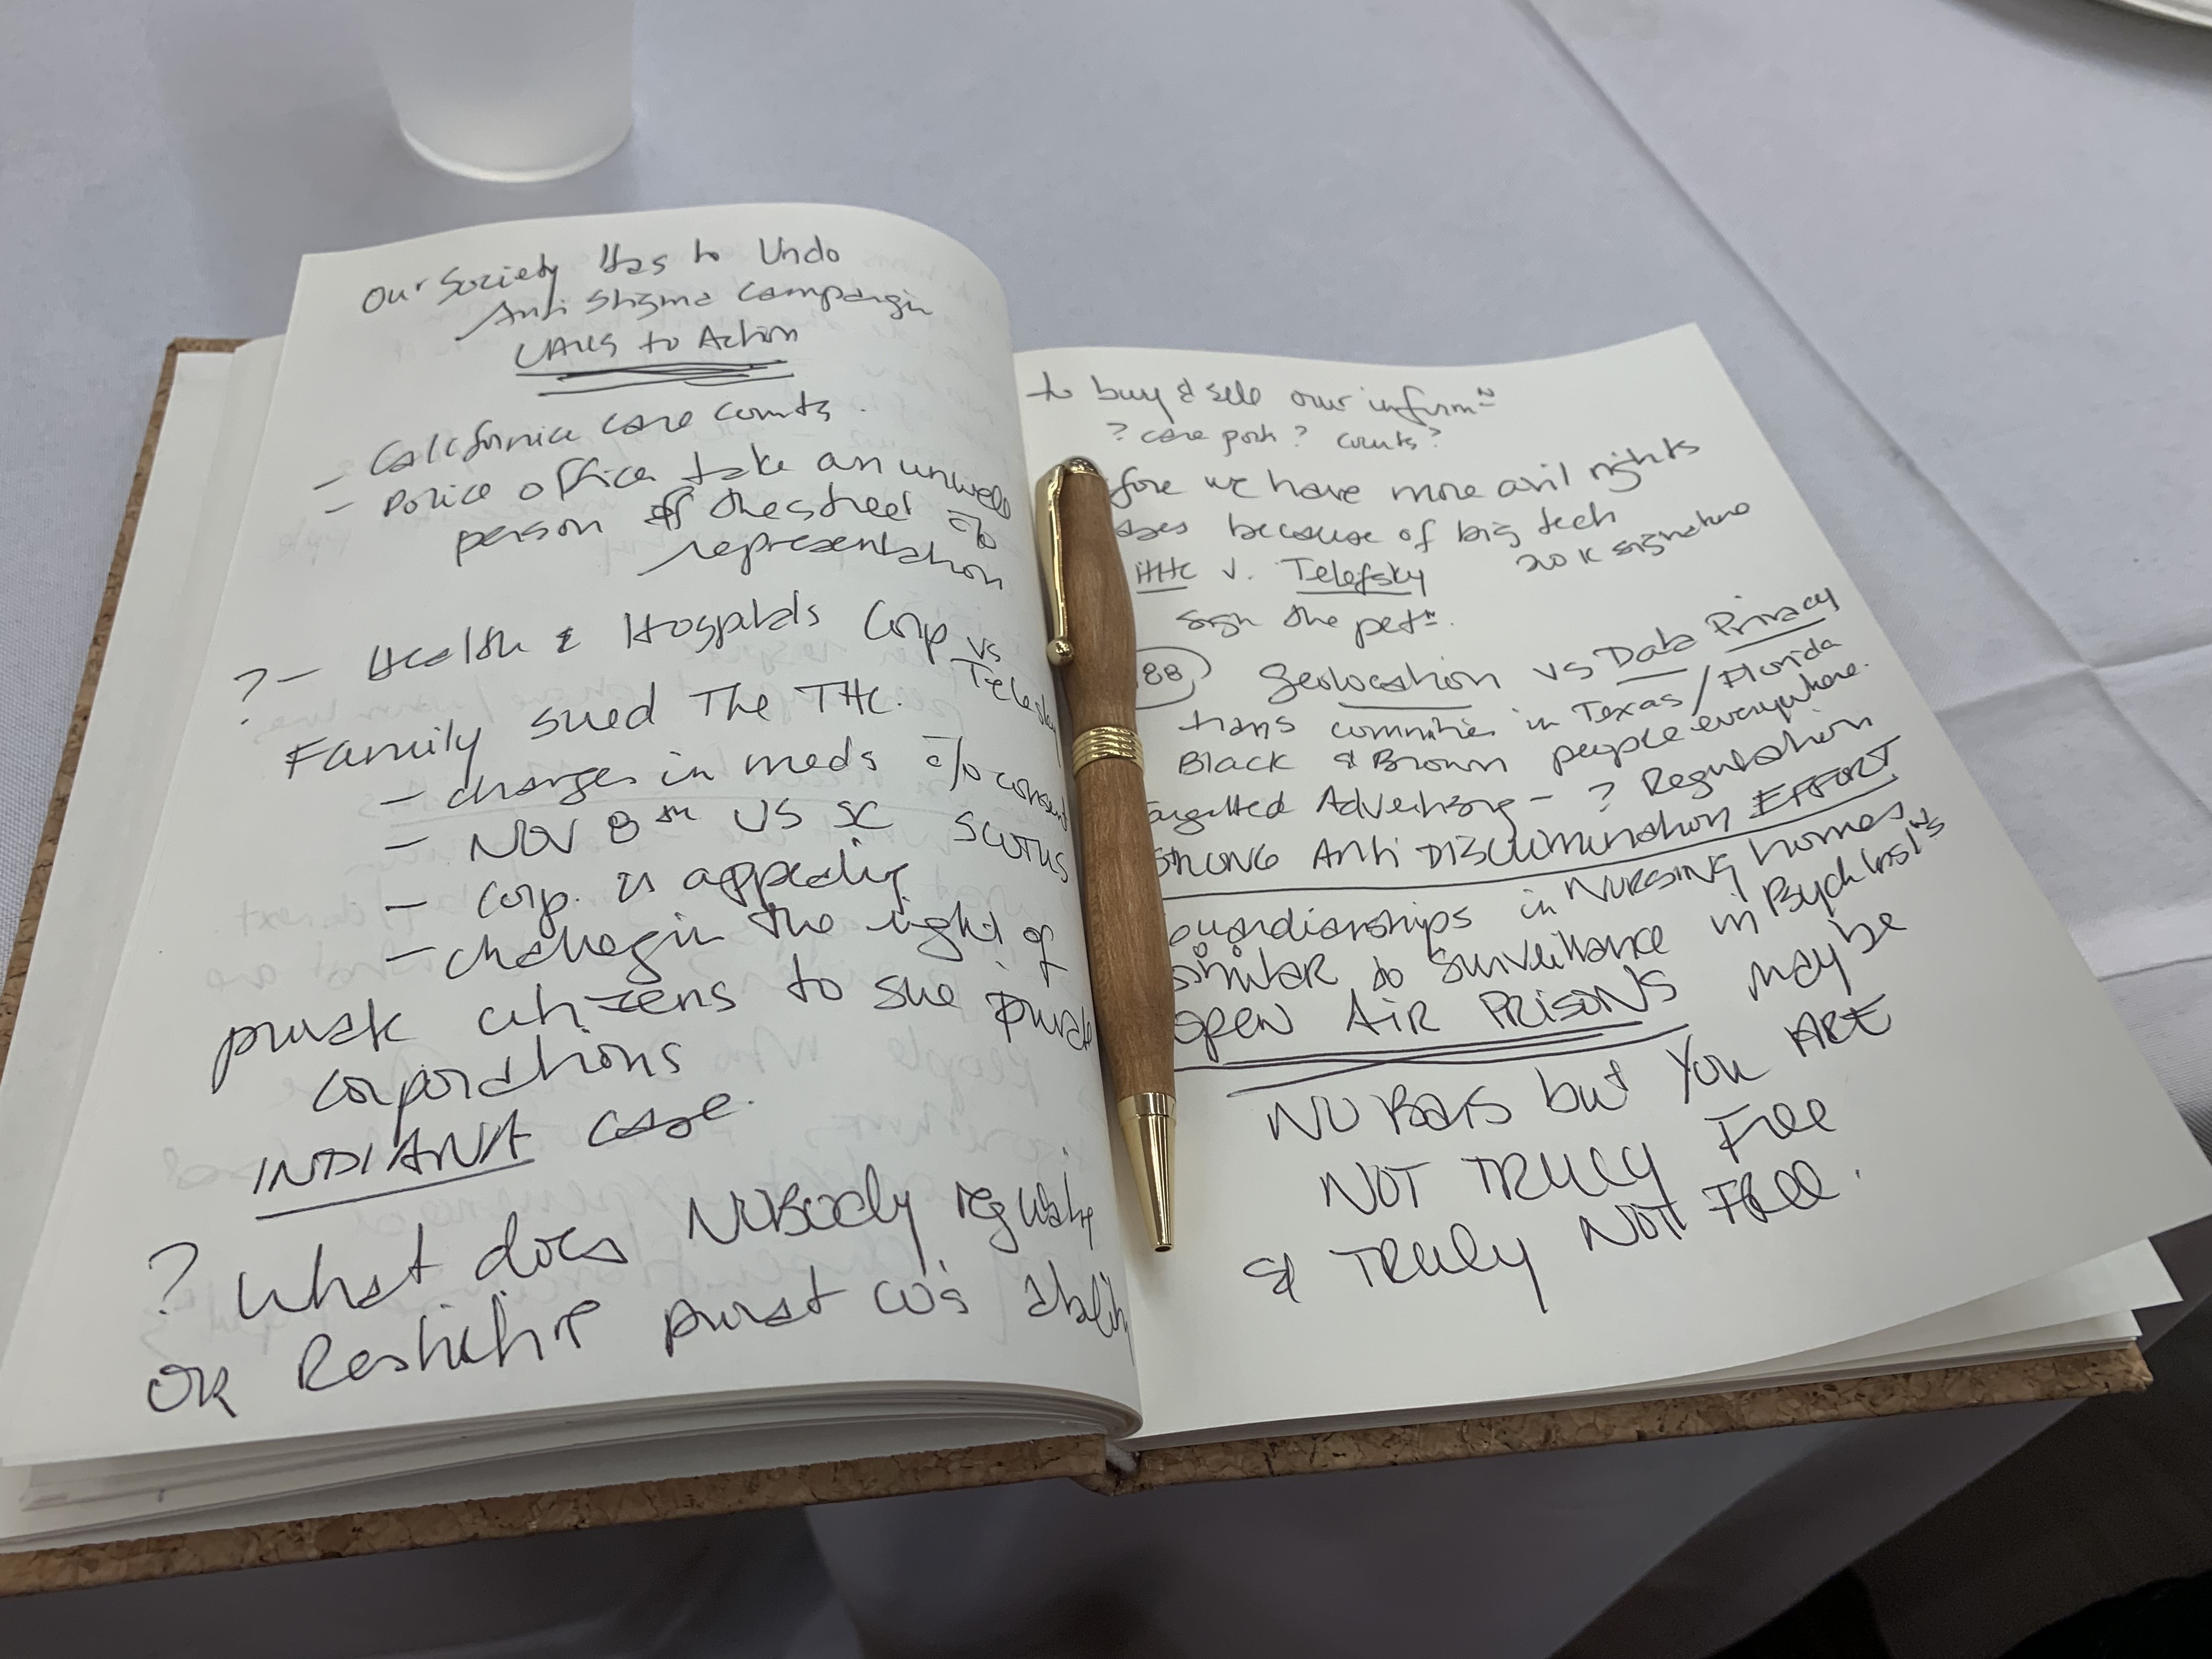 Our Society Has to Undo
Anti Stigma Campaign
CALLS to Action
- California care courts.
- Police office take an unwell
person off the street
representation
? - Health & Hospitals Corp vs
Telesky
Family sued The THC.
- changes in meds consent
- NOV 8th US SC SCOTUS
- Corp. is appealing
- challengin the right of
private citizens to sue private
corporations
INDIANA case.
? What does NoBody regulate
OR Restricting privat co's ability
to buy & sell our inform
? care port? courts?
fore we have more civil rights
because of big tech
HHC v. Telefsky 20 K signature
sign the pet
88 Geolocation vs Data Privacy
trans commities in Texas / Florida
Black & Brown people everywhere.
Advertizing - ? Regulation
STRONG Anti DISCRIMINATION EFFORT
in NURSING homes
similar to Surveillance in Psych Inst
OPEN AIR PRISONS may be
NO Bars but You ARE
NOT TRULY Free
& TRULY NOT FREE.